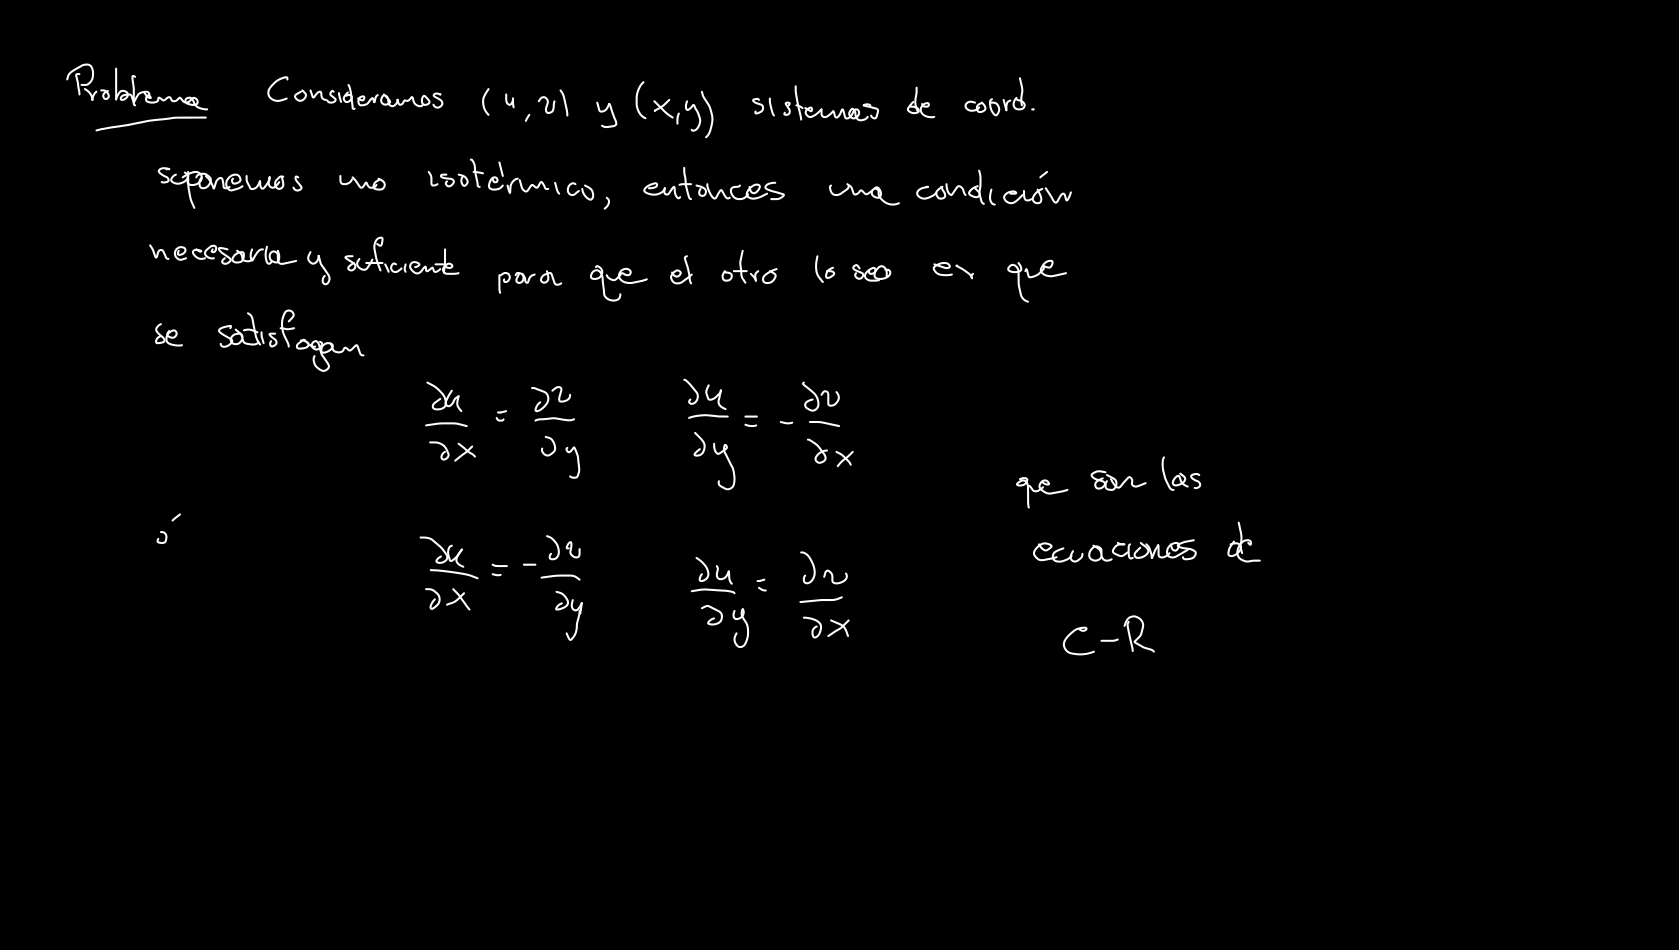 Problema Consideramos (u,v) y (x,y) sistemas de coord.
suponemos uno isotérmico, entonces una condición
necesaria y suficiente para que el otro lo sea es que
se satisfagan
∂u/∂x = ∂v/∂y ∂u/∂y = - ∂v/∂x
que son las
ó ∂u/∂x = - ∂v/∂y ∂u/∂y = ∂v/∂x
ecuaciones de
C-R